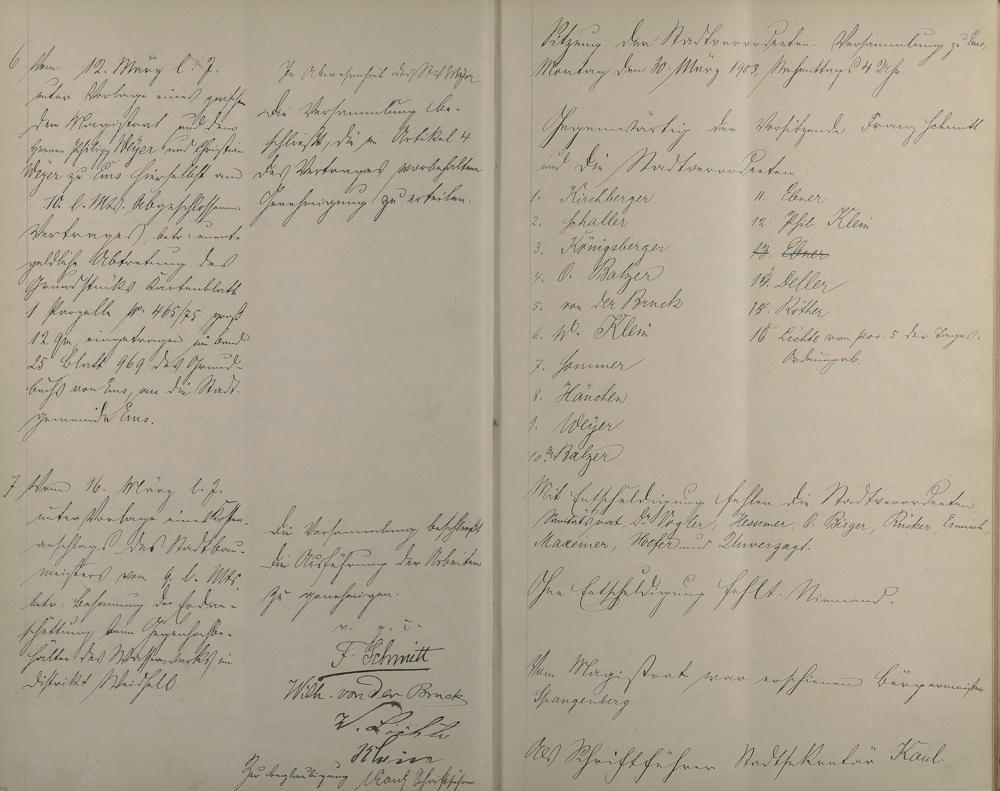 6 Vom 12. März l. J.
unter Vorlage eines zwischen
dem Magistrat und den
Herren Philipp Weyer und Christian
Weyer zu Ems hierselbst am
10. l. Mts. abgeschlossenen
Vertrages, betr: unent-
geldliche Abtretung des
Grundstücks Kartenblatt
1 Parzelle Nr. 465/75 groß
12 qm, eingetragen im Band
25 Blatt 969 des Grund-
buchs von Ems, an die Stadt-
gemeinde Ems.
In Abwesenheit des Stv. Weyer
Die Versammlung be-
schließt, die in Artikel 4
des Vertrages vorbehaltene
Genehmigung zu erteilen.
7 Vom 16. März l. J.
unter Vorlage eines Kosten-
anschlags des Stadtbau-
meisters vom 9. l. Mts.
betr: der Erdan-
schüttung beim Gegenhochbe-
hälter des Wasserwerks im
Distrikt
Die Versammlung beschließt
die Ausführung der Arbeiten
zu genehmigen.
v. g. u.
F. Schmitt
Wilh. von der Bruck
W. Lichte
Klein
Zur Beglaubigung Kaul Schriftführer
Sitzung der Stadtverordneten-Versammlung zu Ems,
Montag den 30. März 1903, Nachmittags 4 Uhr
Gegenwärtig der Vorsitzende Franz Schmitt
und die Stadtverordneten
1. Kirchberger
2. Schaller
3. Königsberger
4. O. Balzer
5. von der Bruck
6. W. Klein
7. Sommer
8. Hänchen
9. Weyer
10. Balzer
11. Ebner
12. Phil. Klein
13. Ebner
14. Deller
15. Röther
16. Lichte von pos. 5 der Tages-
Ordnung ab.
Mit Entschuldigung fehlen die Stadtverordneten
Sanitätsrat Dr. Vogler, Hessemer, O. Bieger, Rücker,
Maxeiner, Hofer und Unverzagt.
Ohne Entschuldigung fehlt Niemand.
Vom Magistrat war erschienen Bürgermeister
Spangenberg
Als Schriftführer Stadtsekretär Kaul.